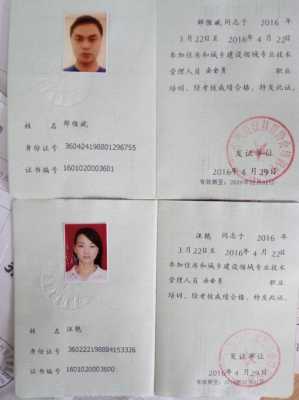 同志于 2016 年
3 月 22日至 2016 年 4 月 22日
参加住房和城乡建设领域专业技术
管理人员 安全员 职业
培训，经考核成绩合格，特发此证。
姓 名
身份证号 360424198801296755
证书编号 1601020003601
发证单位
2016年 4 月29日
有效期至:
汪艳 同志于 2016 年
3 月 22日至 2016 年 4 月 22日
参加住房和城乡建设领域专业技术
管理人员 安全员 职业
培训，经考核成绩合格，特发此证。
姓 名 汪艳
身份证号 360222198884153326
证书编号 1601020003600
发证单位
2016年 4 月29日
有效期至: